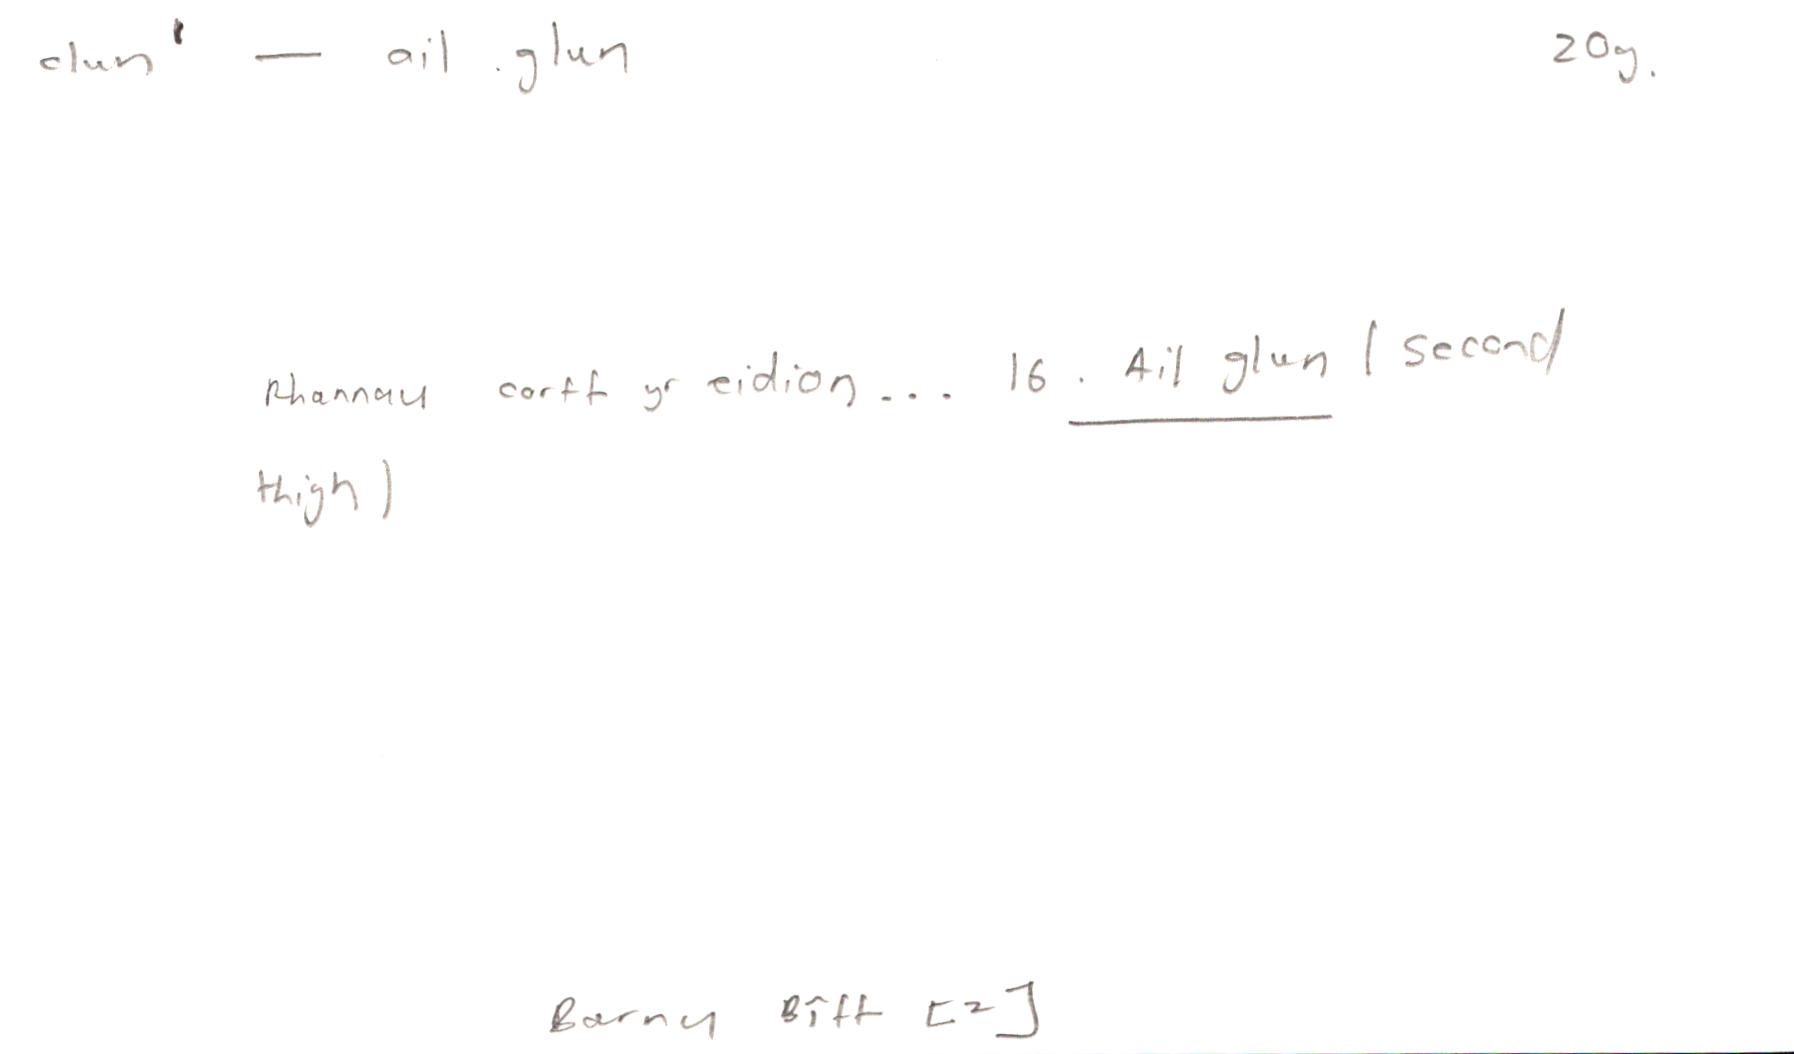 clun¹ — ail glun 20g.
Rhannau corff yr eidion... 16. Ail glun (second
thigh)
Barnu Bîff [2]